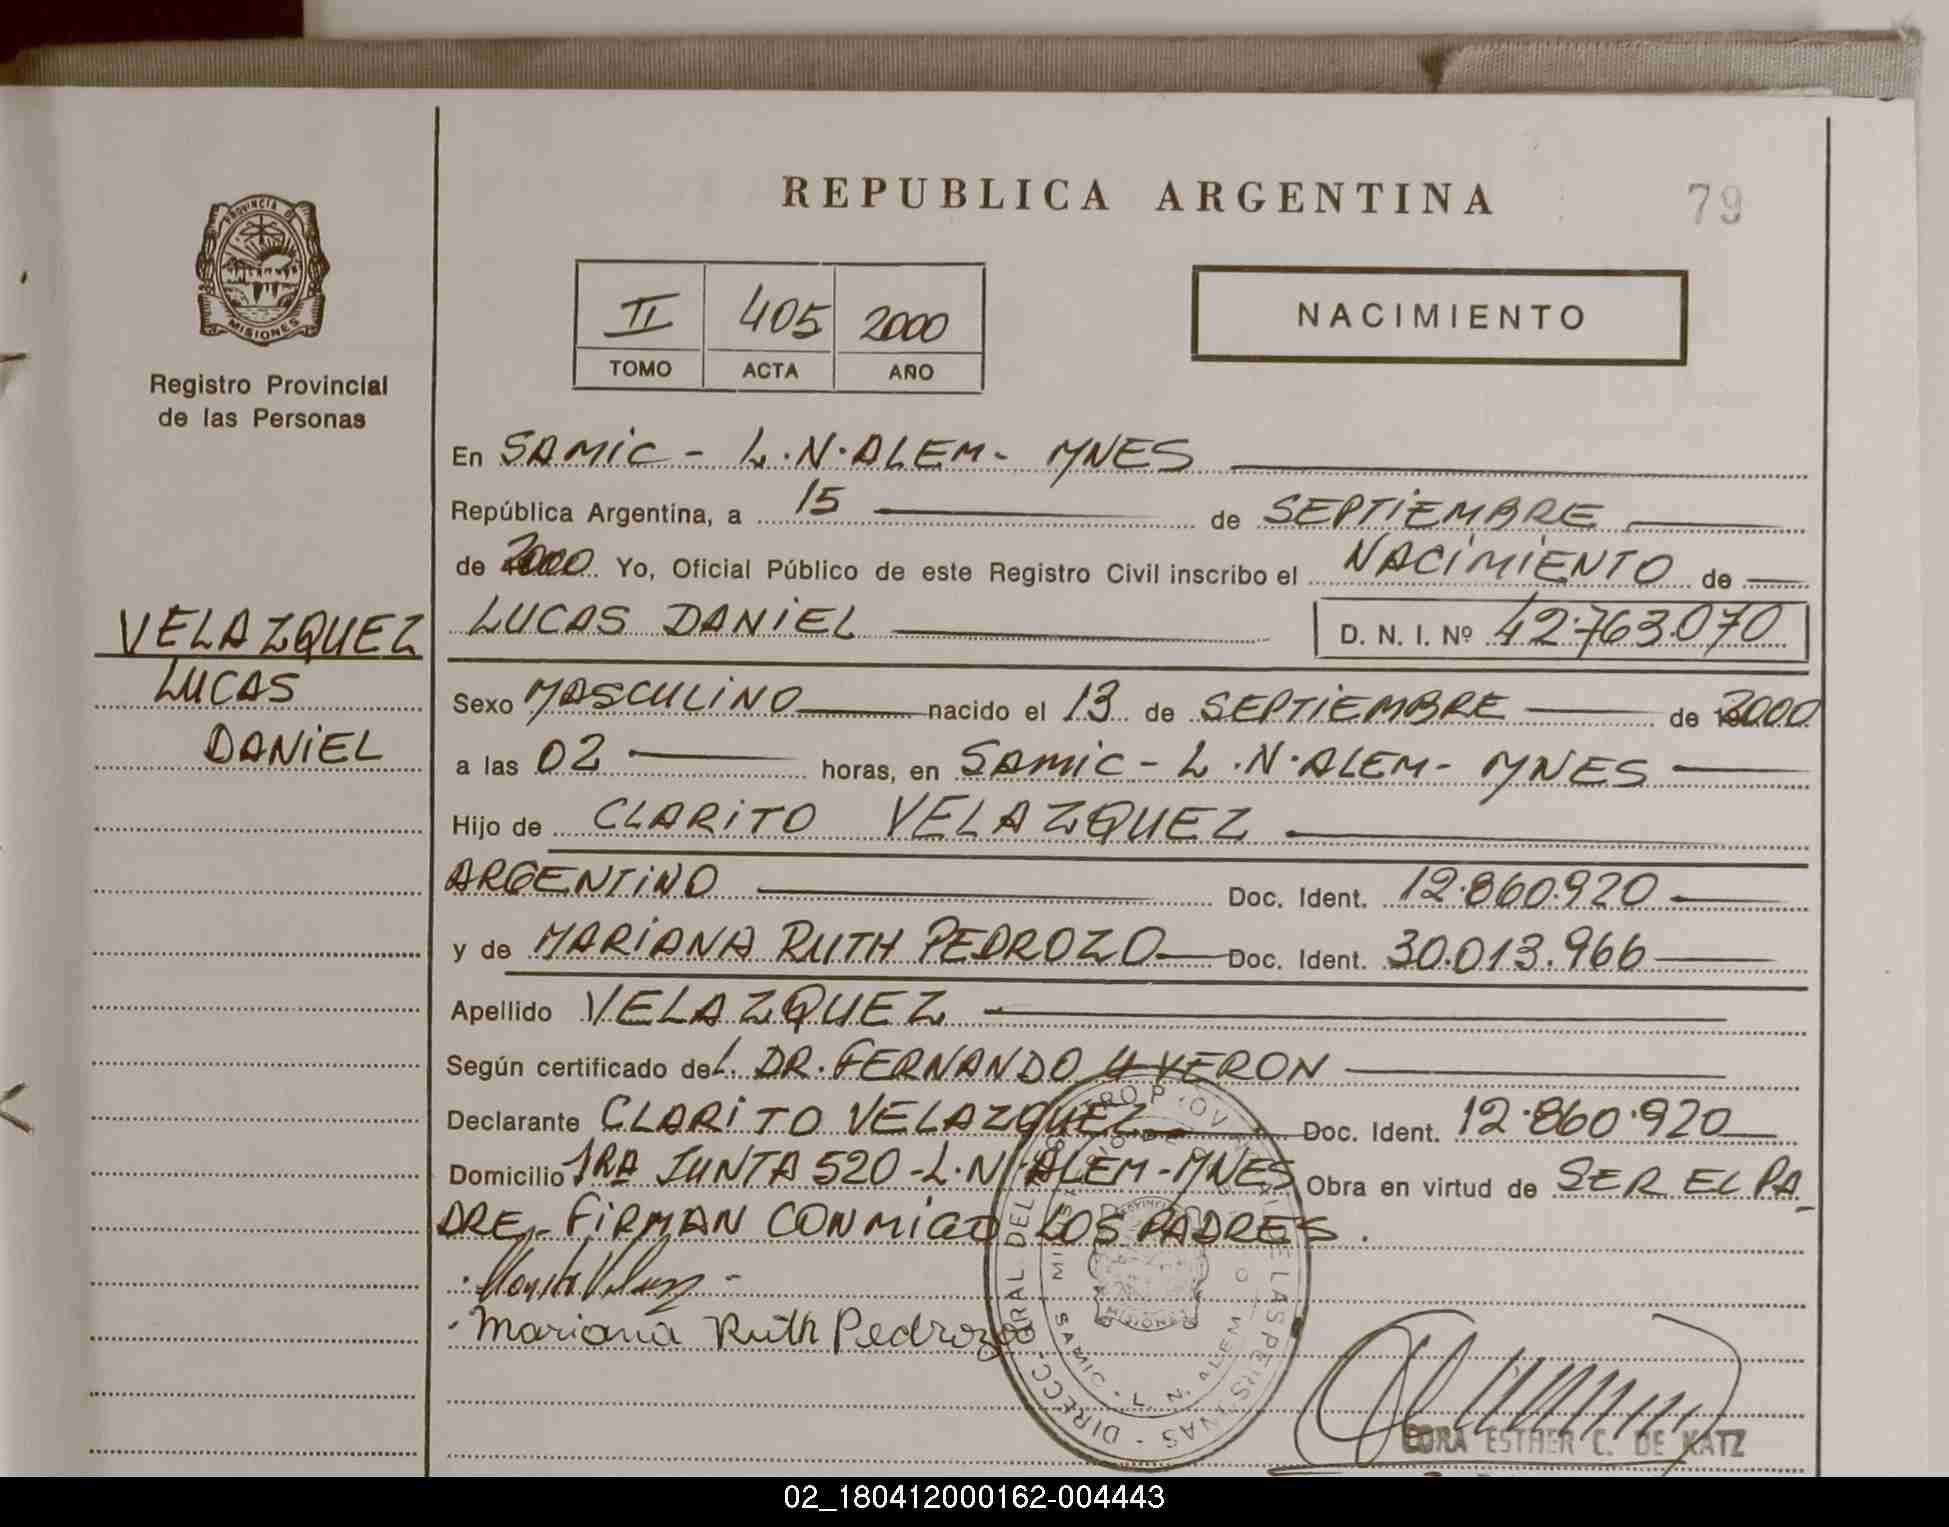 REPUBLICA ARGENTINA
79
PROVINCIA DE
MISIONES
Registro Provincial
de las Personas
II 405 2000
TOMO ACTA AÑO
NACIMIENTO
En SAMIC - L.N.ALEM- MNES
República Argentina, a 15 de SEPTIEMBRE
de 2000 Yo, Oficial Público de este Registro Civil inscribo el NACIMIENTO de
VELAZQUEZ
LUCAS
DANIEL
LUCAS DANIEL D. N. I. Nº 42.763.070
Sexo MASCULINO nacido el 13 de SEPTIEMBRE de 2000
a las 02 horas, en SAMIC - L.N.ALEM- MNES
Hijo de CLARITO VELAZQUEZ
ARGENTINO Doc. Ident. 12.860.920
y de MARIANA RUTH PEDROZO Doc. Ident. 30.013.966
Apellido VELAZQUEZ
Según certificado del. DR. FERNANDO VERON
Declarante CLARITO VELAZQUEZ Doc. Ident. 12.860.920
Domicilio 1RA JUNTA 520 -L.N.ALEM-MNES Obra en virtud de SER EL PA-
DRE- FIRMAN CONMIGO LOS PADRES.
Mariana Ruth Pedrozo
SAMIC - L. N. ALEM
CORA ESTHER C. DE KATZ
02_180412000162-004443